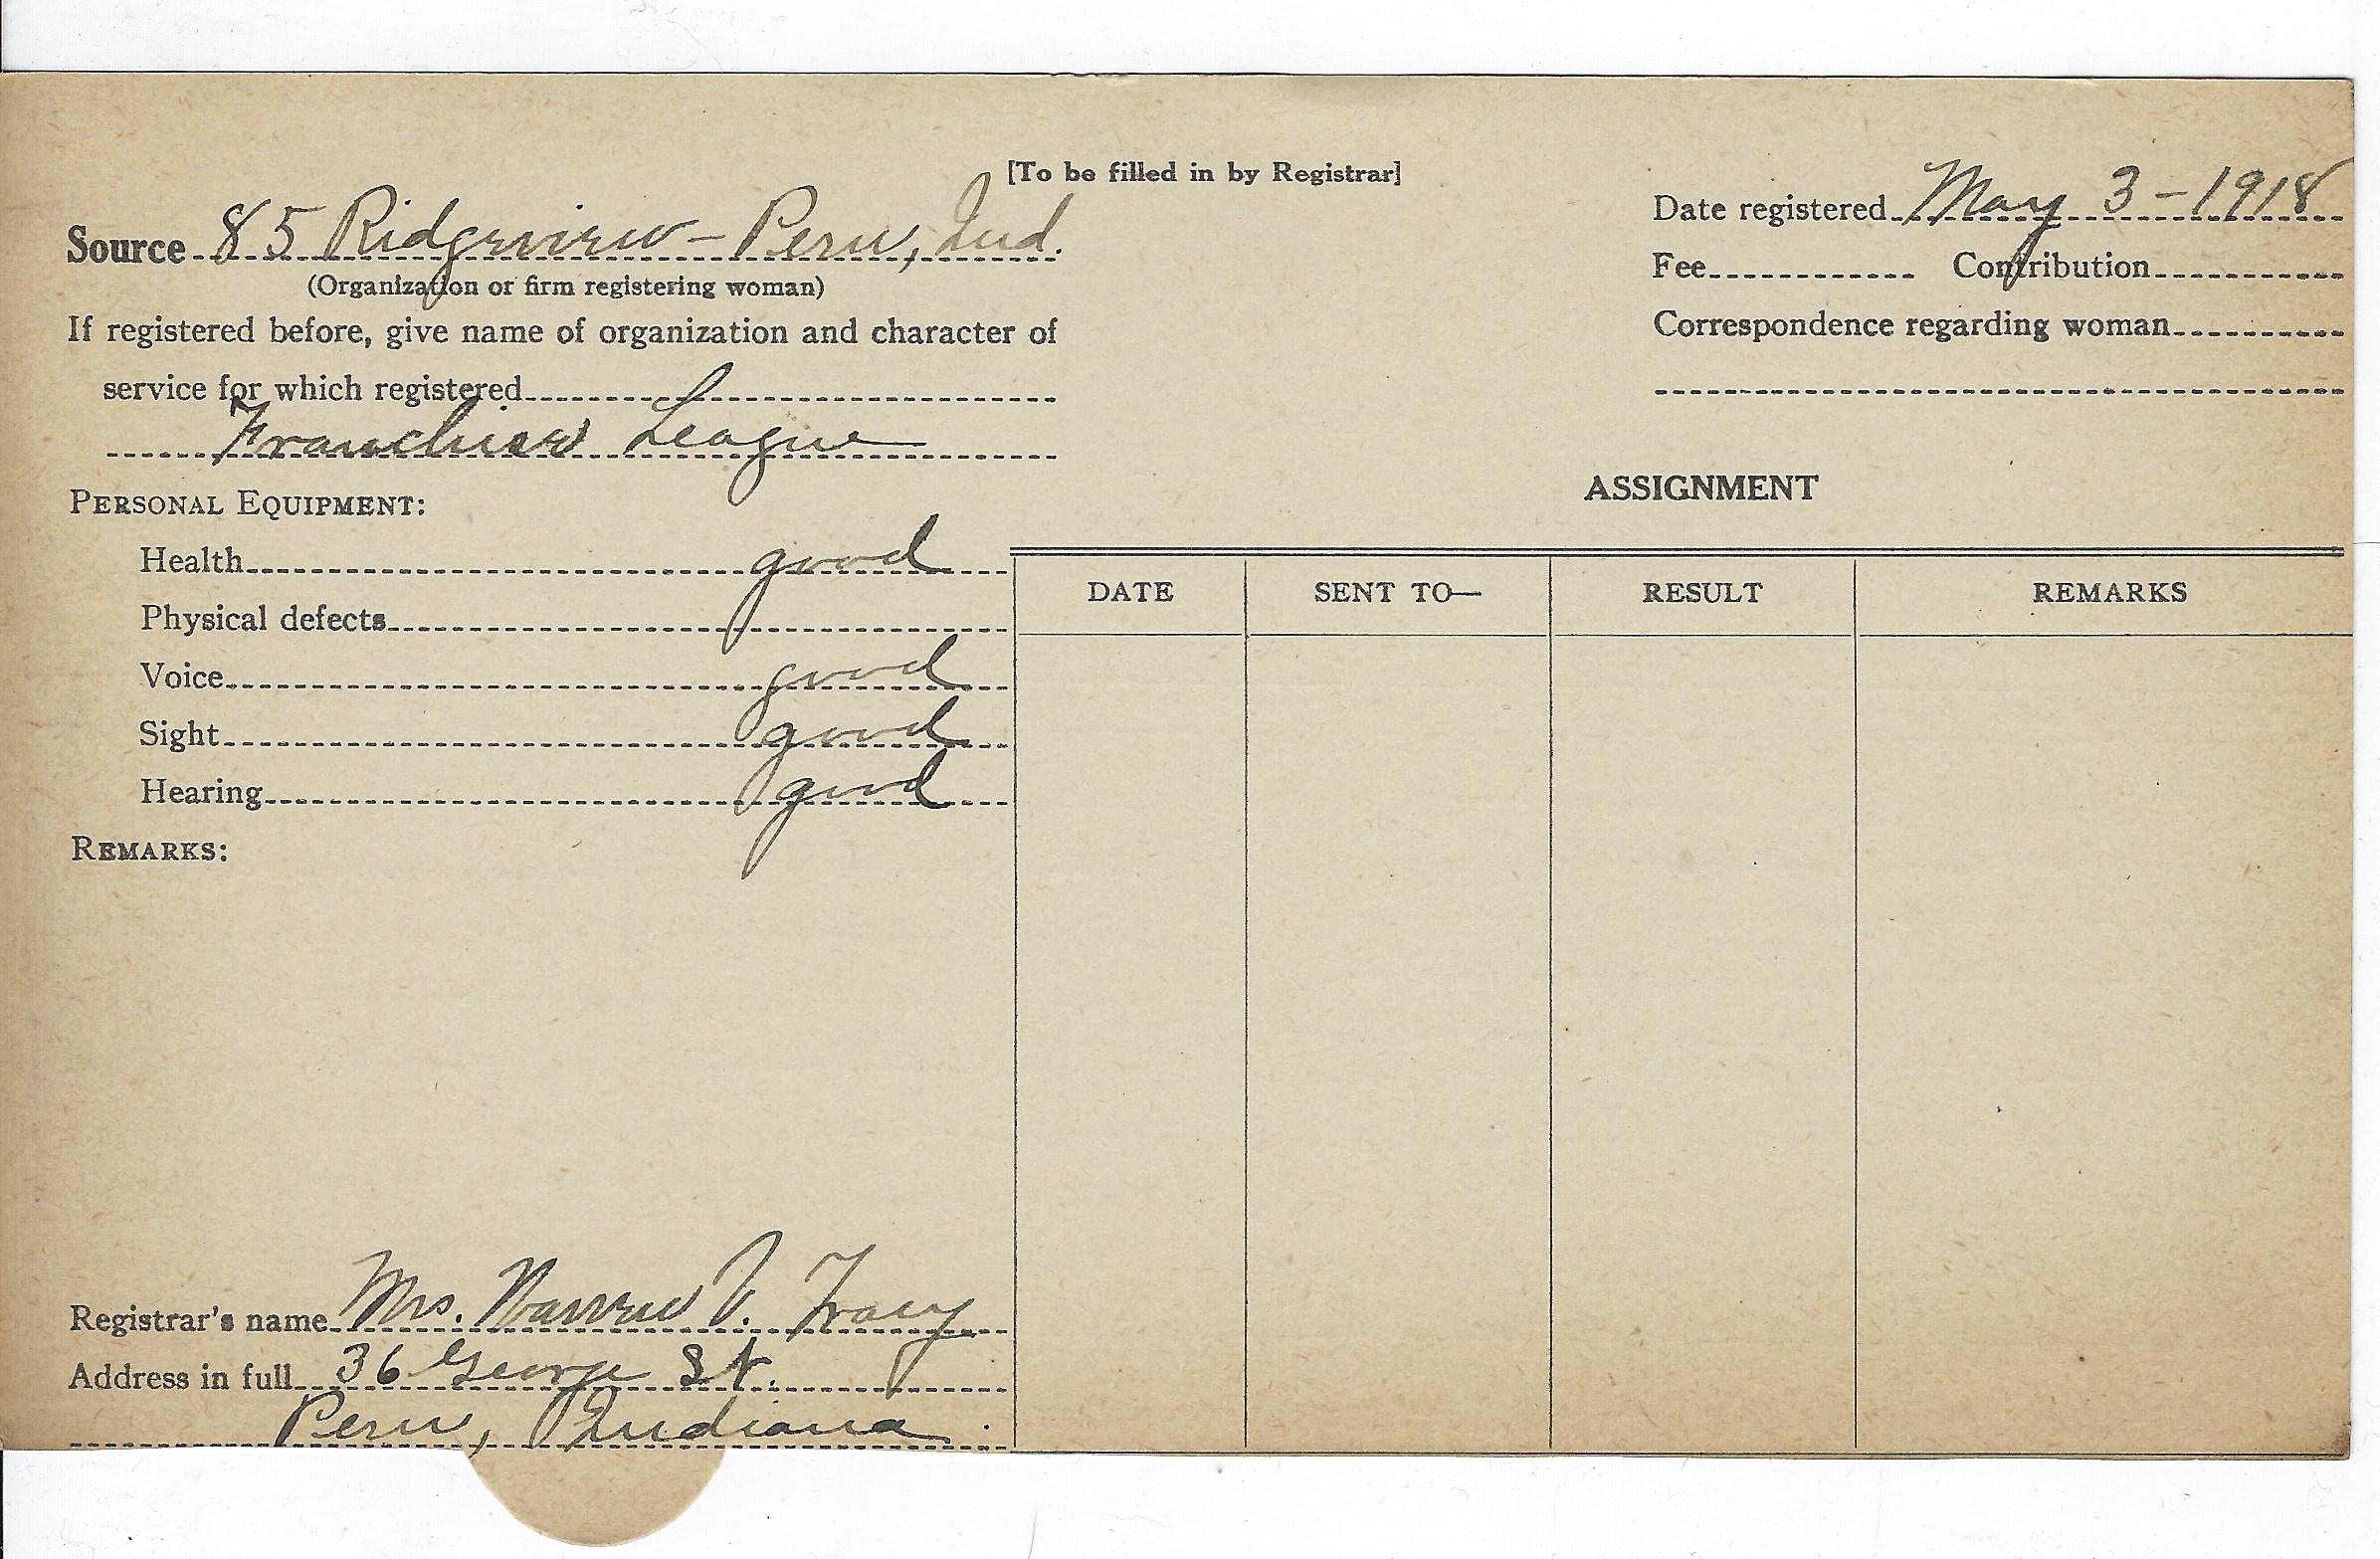 [To be filled in by Registrar]
Source 85 Ridgeview - Peru, Ind.
(Organization or firm registering woman)
If registered before, give name of organization and character of
service for which registered
Franchise League
PERSONAL EQUIPMENT:
Health good
Physical defects
Voice good
Sight good
Hearing good
REMARKS:
Registrar's name Mrs. V. Tracy
Address in full 36 George St.
Peru, Indiana
Date registered May 3 - 1918
Fee Contribution
Correspondence regarding woman
ASSIGNMENT
DATE SENT TO— RESULT REMARKS